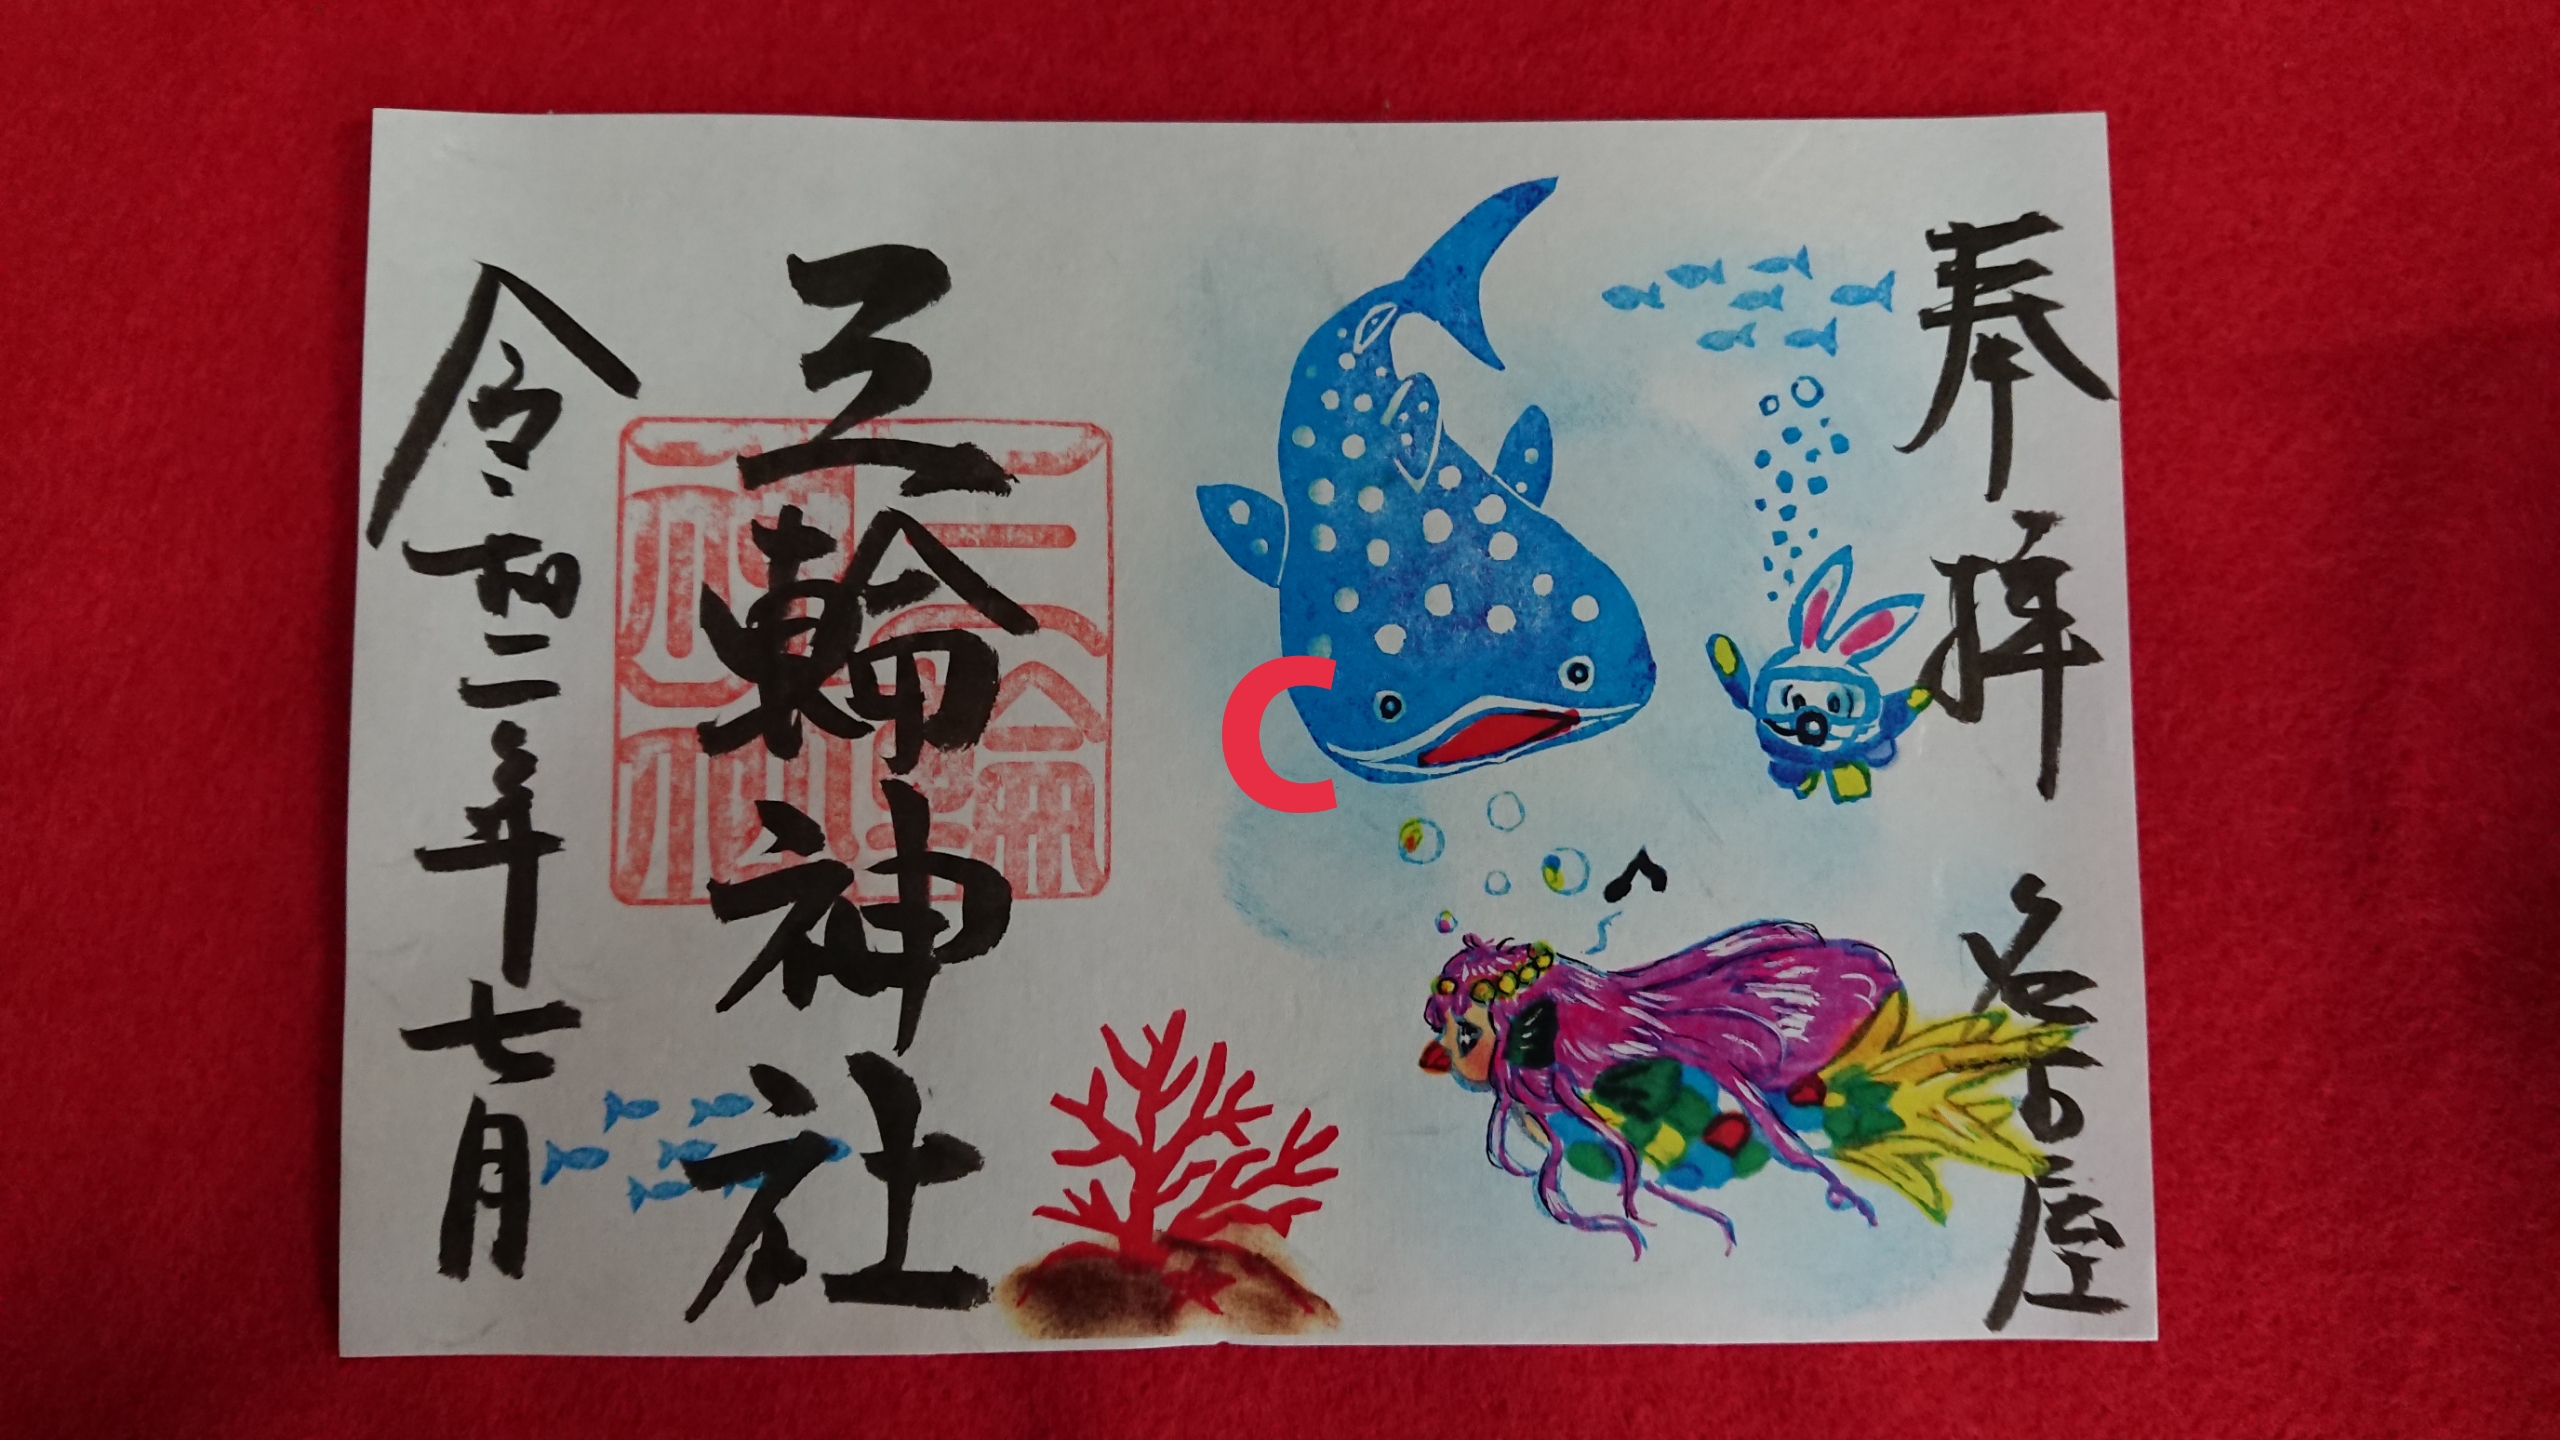 奉拝 名古屋
三輪神社
三輪神社
令和二年七月
C